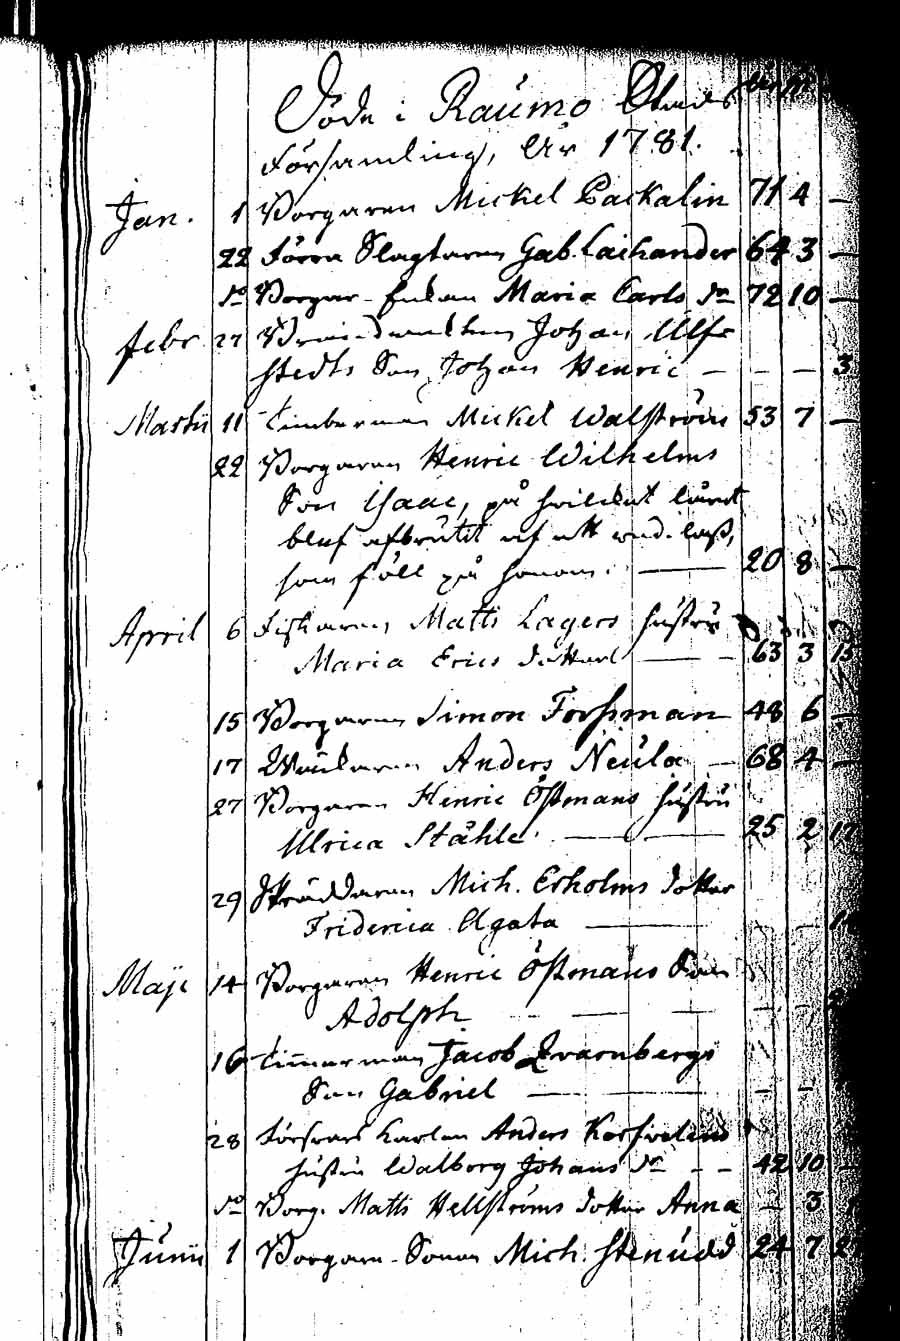 Döde i Raumo Stads
Församling, År 1781.
Jan. 1 Borgaren Mickel Packalin 71 4 —
22 Förra Slagtaren Gab. Laihander 64 3 —
do Borgar-Enkan Maria Carls dr 72 10 —
Febr 27 Johan Ulf
stedts Son Johan Henric — — — 3
Martii 11 Timberman Mickel Walström 53 7 —
22 Borgaren Henric Wilhelms
Son Isaac, på hvilken låret
blef afbrutit af ett lass,
som föll på honom. — 20 8 —
April 6 Fiskaren Matts Lagers hustru
Maria Erics dotter — — 63 3 15
15 Borgaren Simon Forssman 48 6 —
17 Anders Neula — 68 4 —
27 Borgaren Henric Östmans hustru
Ulrica Ståhle. — — 25 2 17
29 Skräddaren Mich. Erholms dotter
Friderica Agata —
Maji 14 Borgaren Henric Östmans Son
Adolph — — —
16 Timmerman Jacob Qvarnbergs
Son Gabriel — — — —
28 Anders
hustru Walborg Johans dr — — 42 10 —
do Borg. Matts Hellströms dotter Anna — 3
Junii 1 Borgare-Sonen Mich. Stenudd 24 7